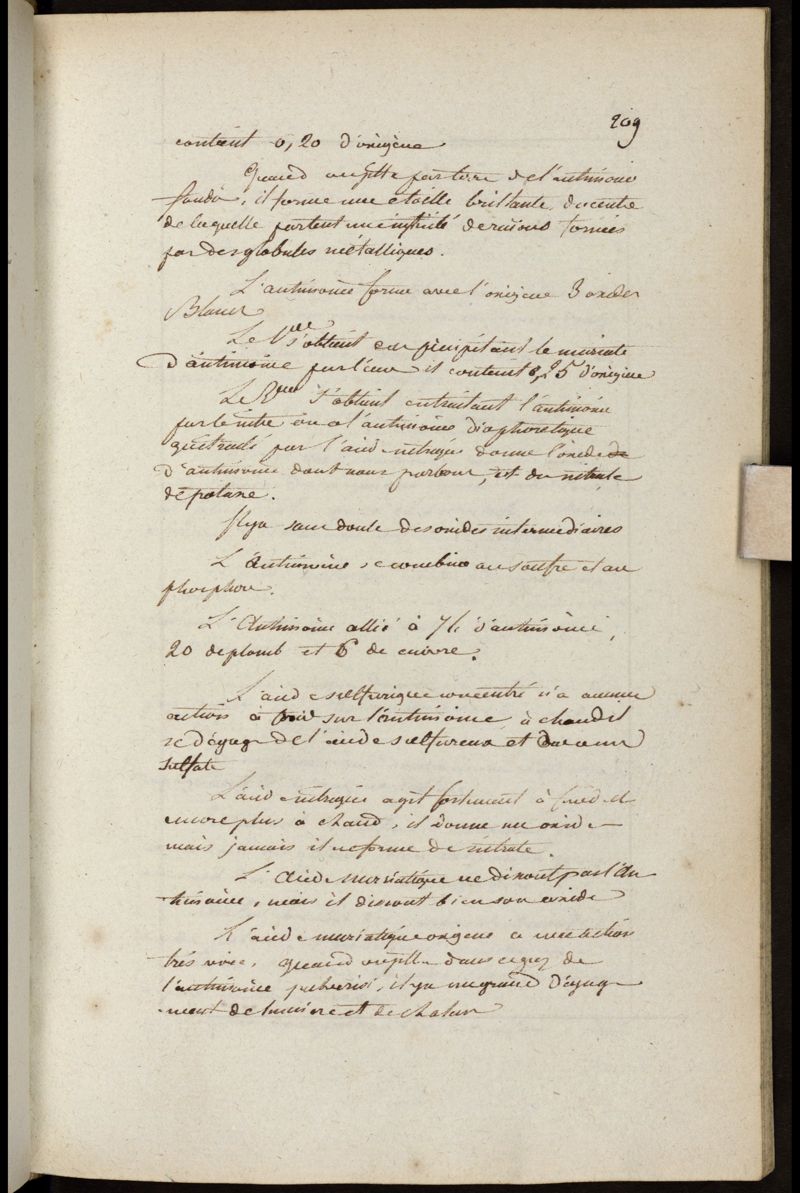 209
contient 0,20 d'oxigène
Quand on jette par terre de l'antimoine
fondu, il forme une étoile brillante, du centre
de laquelle partent une infinité de raions formés
par des globules métalliques.
L'antimoine forme avec l'oxigène 3 oxides
Blancs
Le 1er s'obtient en précipitant le muriate
d'antimoine par l'eau il contient 0,25 d'oxigène
Le 2me s'obtient en traitant l'antimoine
par le nitre on a l'antimoine diaphoretique
qui traité par l'acide nitrique donne l'oxide
d'antimoine dont nous parlons, et du nitrate
de potasse.
Il y a sans doute des oxides intermediaires
L'antimoine se combine au soufre et au
phosphore.
L'Antimoine allié à 74 d'antimoine,
20 de plomb et 6 de cuivre.
L'acide sulfurique concentré n'a aucune
action à froid sur l'antimoine, à chaud il
se dégage de l'acide sulfureux et on a un
sulfate
L'acide nitrique agit fortement à froid et
encore plus à chaud, il donne un oxide
mais jamais il ne forme de nitrate.
L'acide muriatique ne dissout pas l'an
timoine, mais il dissout bien son oxide
L'acide muriatique oxigené a une action
très vive, quand on jette dans ce gaz de
l'antimoine pulverisé, il y a un grand dégage
-ment de lumiere et de chaleur